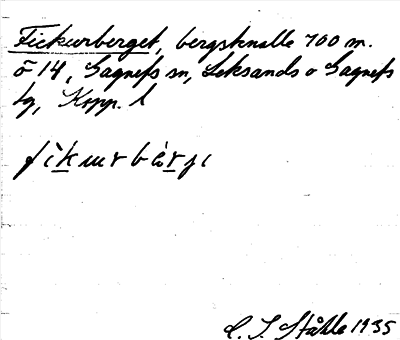 Fickurberget, bergsknalle 700 m.
ö 14, Gagnefs sn, Leksands o Gagnefs
tg, Kopp. l
fìkurbærjı
C. I. Ståhle 1935